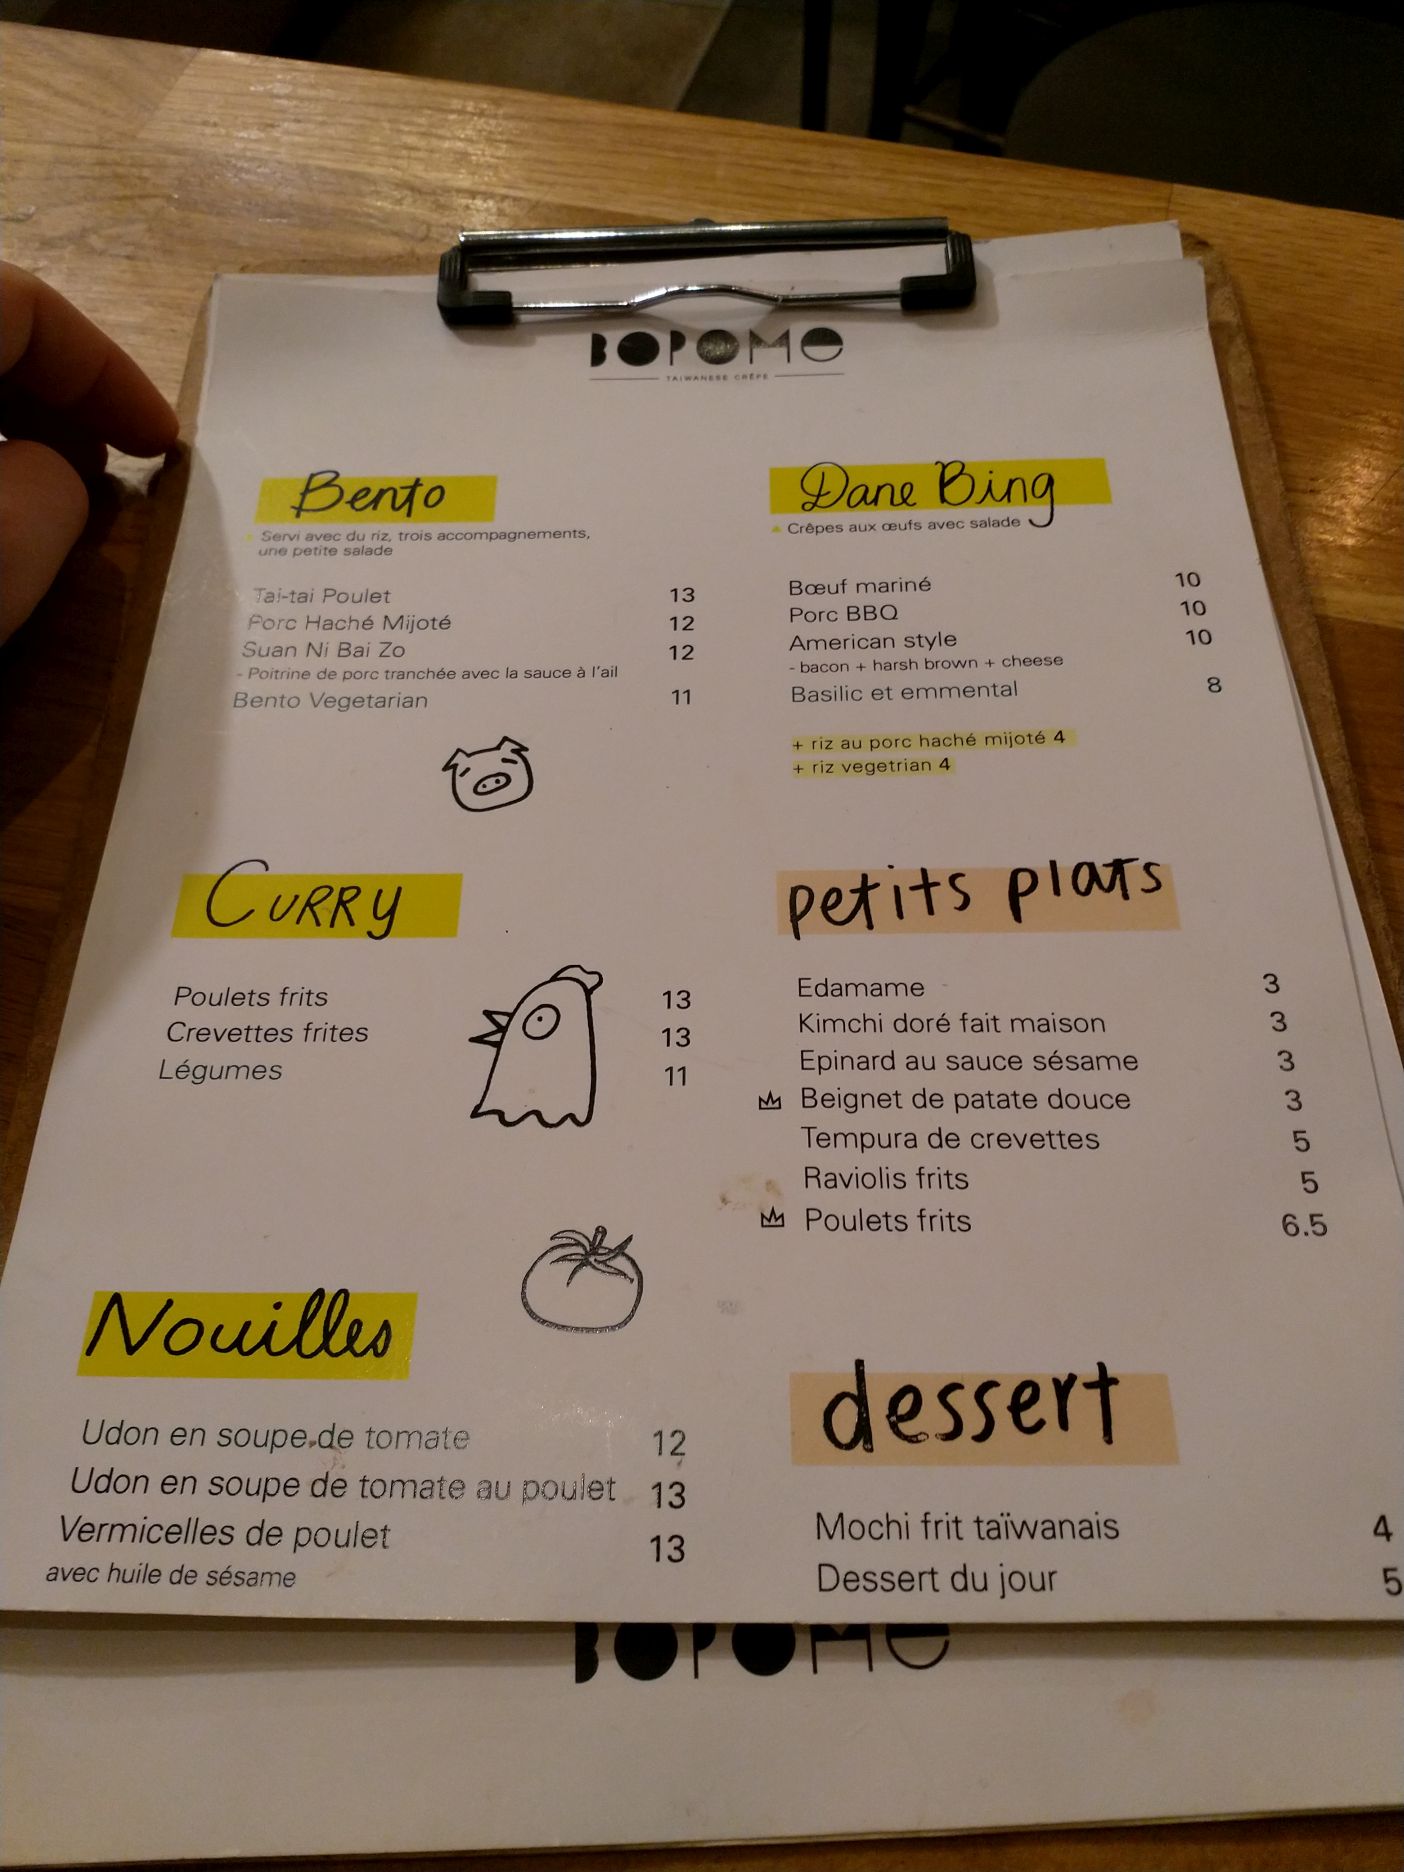 BOPOMO
TAIWANESE CRÊPE
Bento
Servi avec du riz, trois accompagnements,
une petite salade
Tai-tai Poulet 13
Porc Haché Mijoté 12
Suan Ni Bai Zo 12
- Poitrine de porc tranchée avec la sauce à l'ail
Bento Vegetarian 11
Curry
Poulets frits 13
Crevettes frites 13
Légumes 11
Nouilles
Udon en soupe de tomate 12
Udon en soupe de tomate au poulet 13
Vermicelles de poulet 13
avec huile de sésame
Dane Bing
Crêpes aux œufs avec salade
Bœuf mariné 10
Porc BBQ 10
American style 10
- bacon + harsh brown + cheese
Basilic et emmental 8
+ riz au porc haché mijoté 4
+ riz vegetrian 4
petits plats
Edamame 3
Kimchi doré fait maison 3
Epinard au sauce sésame 3
Beignet de patate douce 3
Tempura de crevettes 5
Raviolis frits 5
Poulets frits 6.5
dessert
Mochi frit taïwanais 4
Dessert du jour 5
BOPOMO